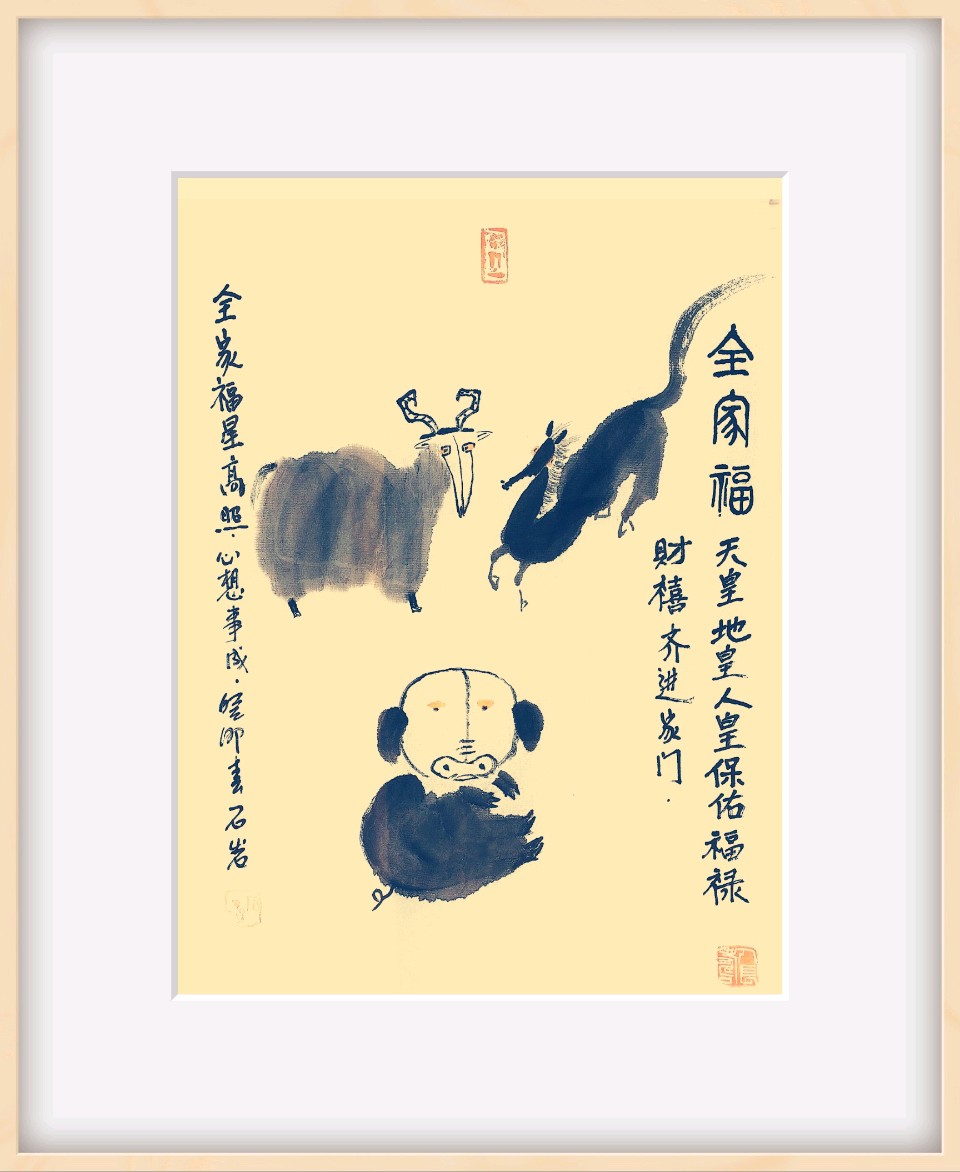 全家福
天皇地皇人皇保佑福禄
財禧齐进家门.
全家福星高照.心想事成.癸卯春石岩